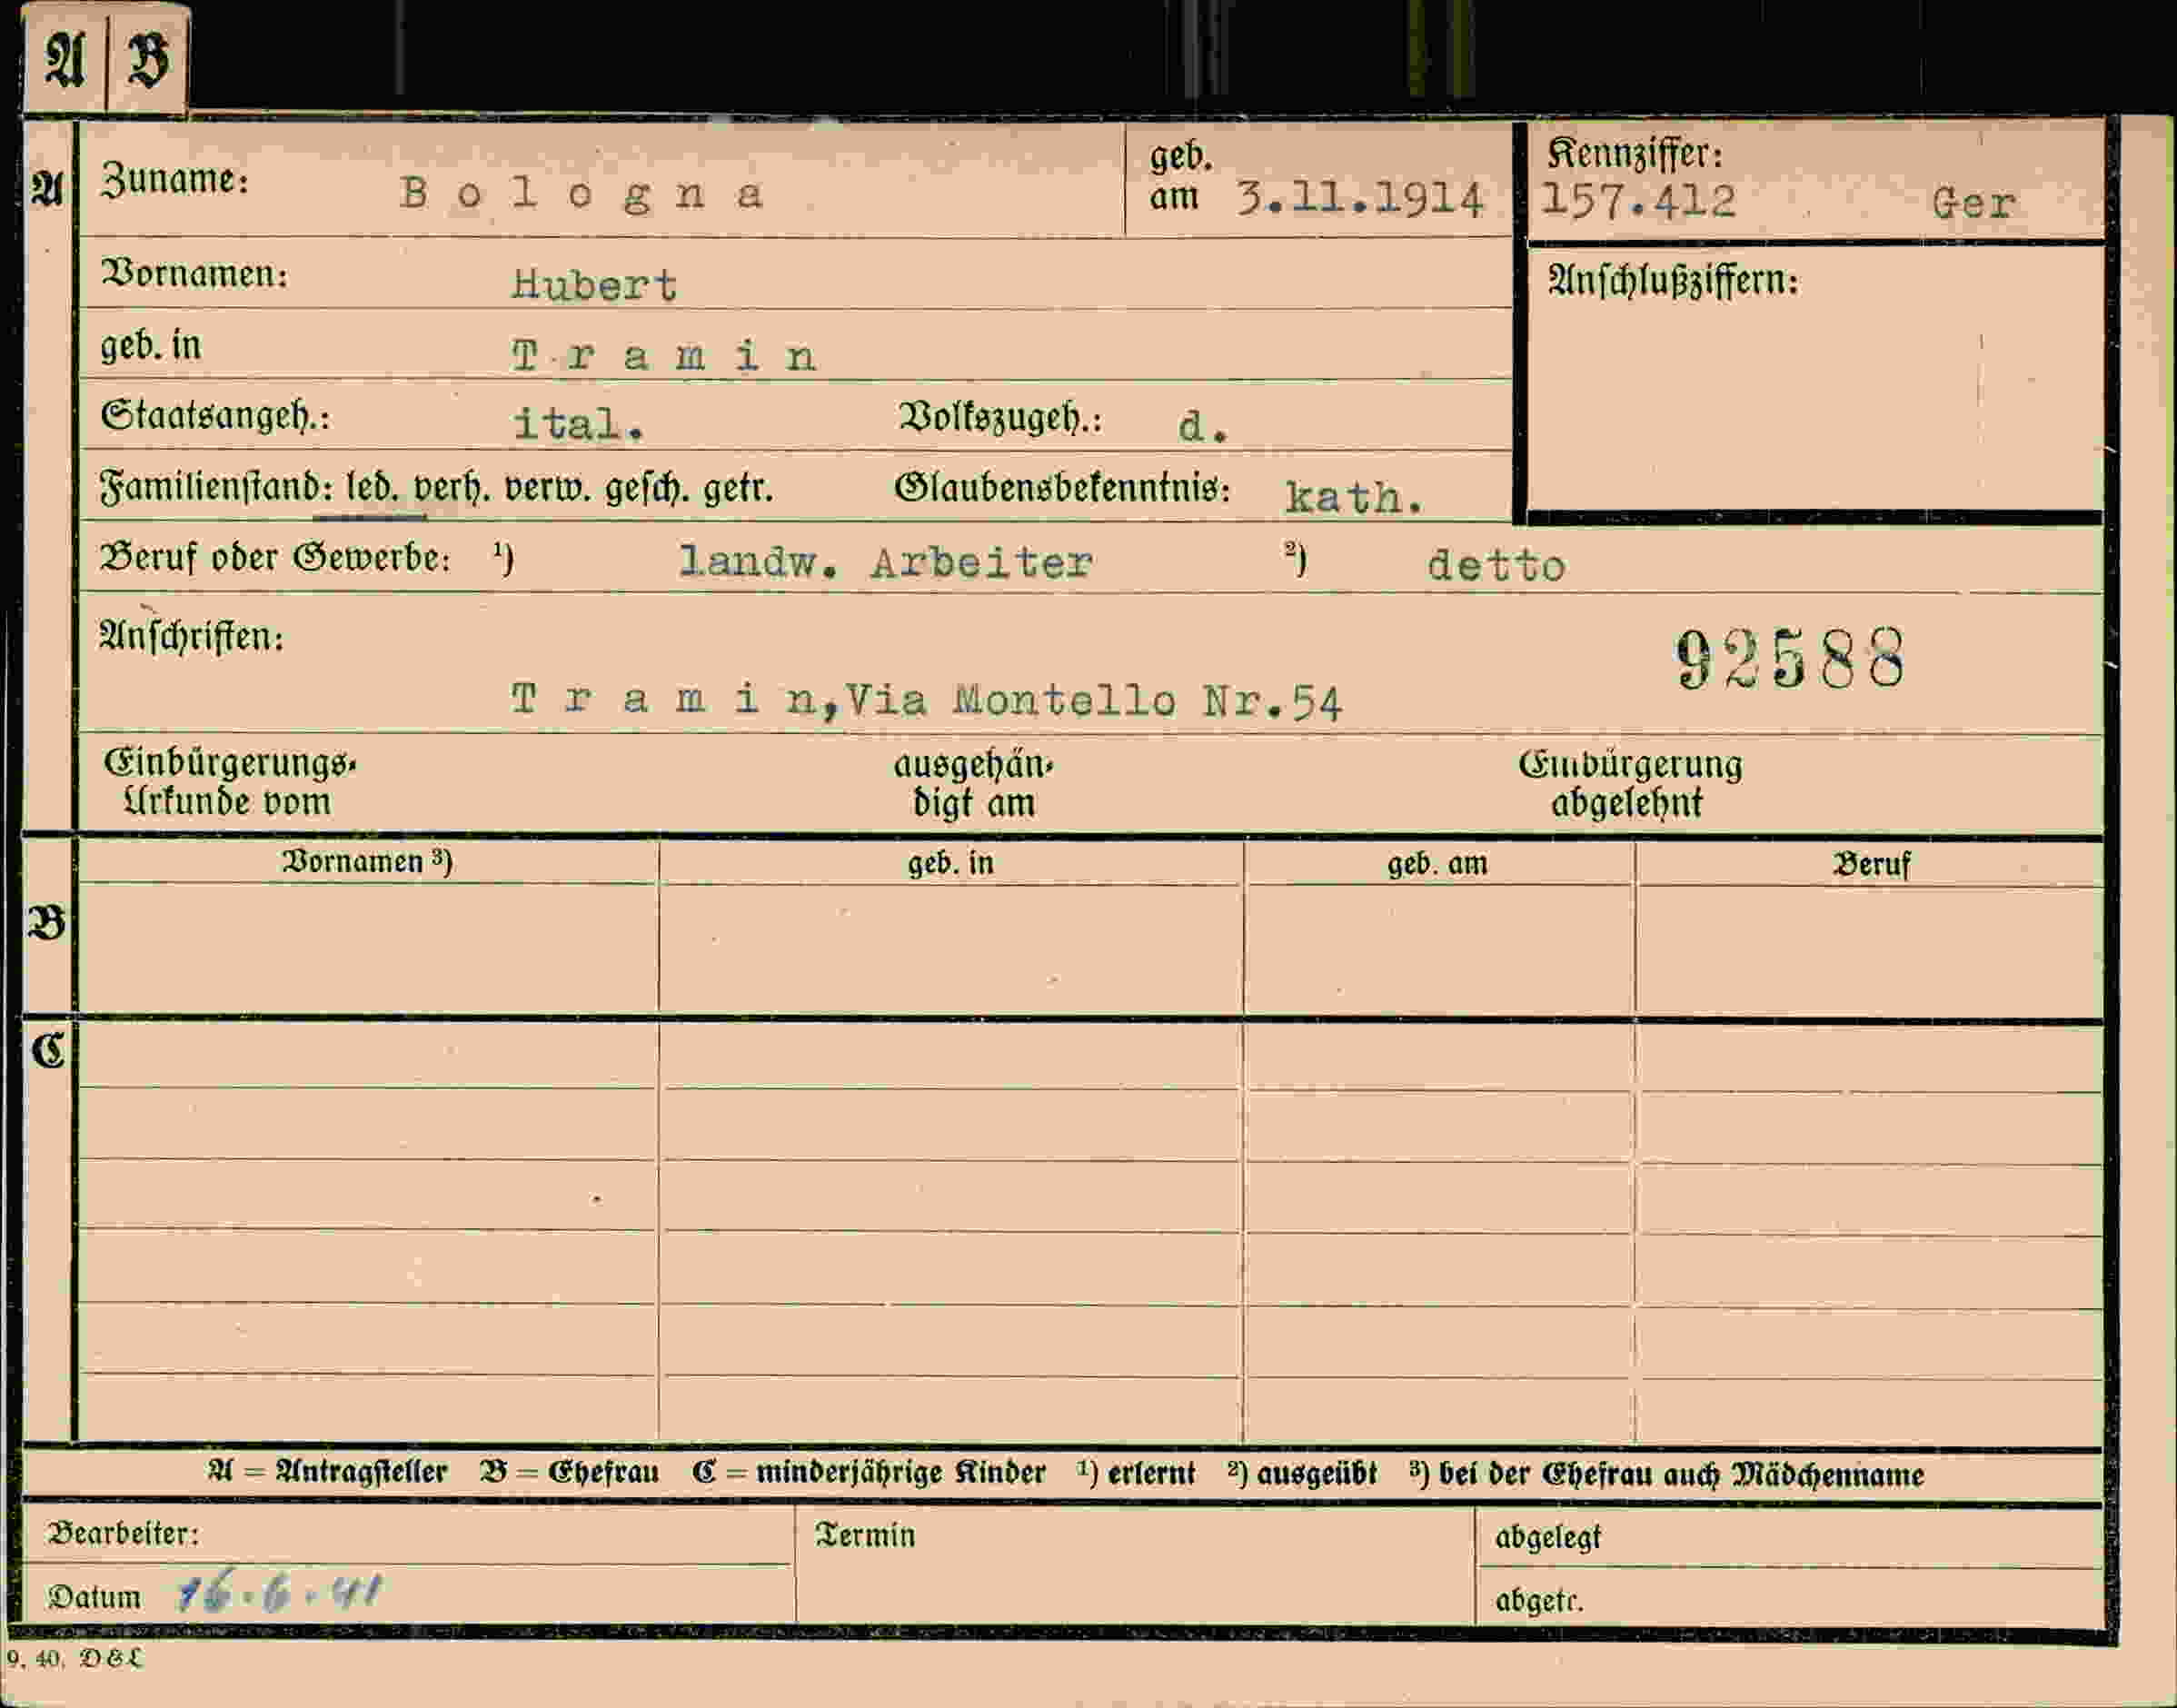 A B
A Zuname: Bologna geb. am 3.11.1914 Kennziffer: 157.412 Ger
Vornamen: Hubert Anschlußziffern:
geb. in Tramin
Staatsangeh.: ital. Volkszugeh.: d.
Familienstand: led. verh. verw. gesch. getr. Glaubensbekenntnis: kath.
Beruf oder Gewerbe: 1) landw. Arbeiter 2) detto
Anschriften: 92588
Tramin, Via Montello Nr.54
Einbürgerungs- ausgehän- Einbürgerung
Urkunde vom digt am abgelehnt
Vornamen 3) geb. in geb. am Beruf
B
C
A = Antragsteller B = Ehefrau C = minderjährige Kinder 1) erlernt 2) ausgeübt 3) bei der Ehefrau auch Mädchenname
Bearbeiter: Termin abgelegt
Datum 16.6.41 abgetr.
9. 40. D&L